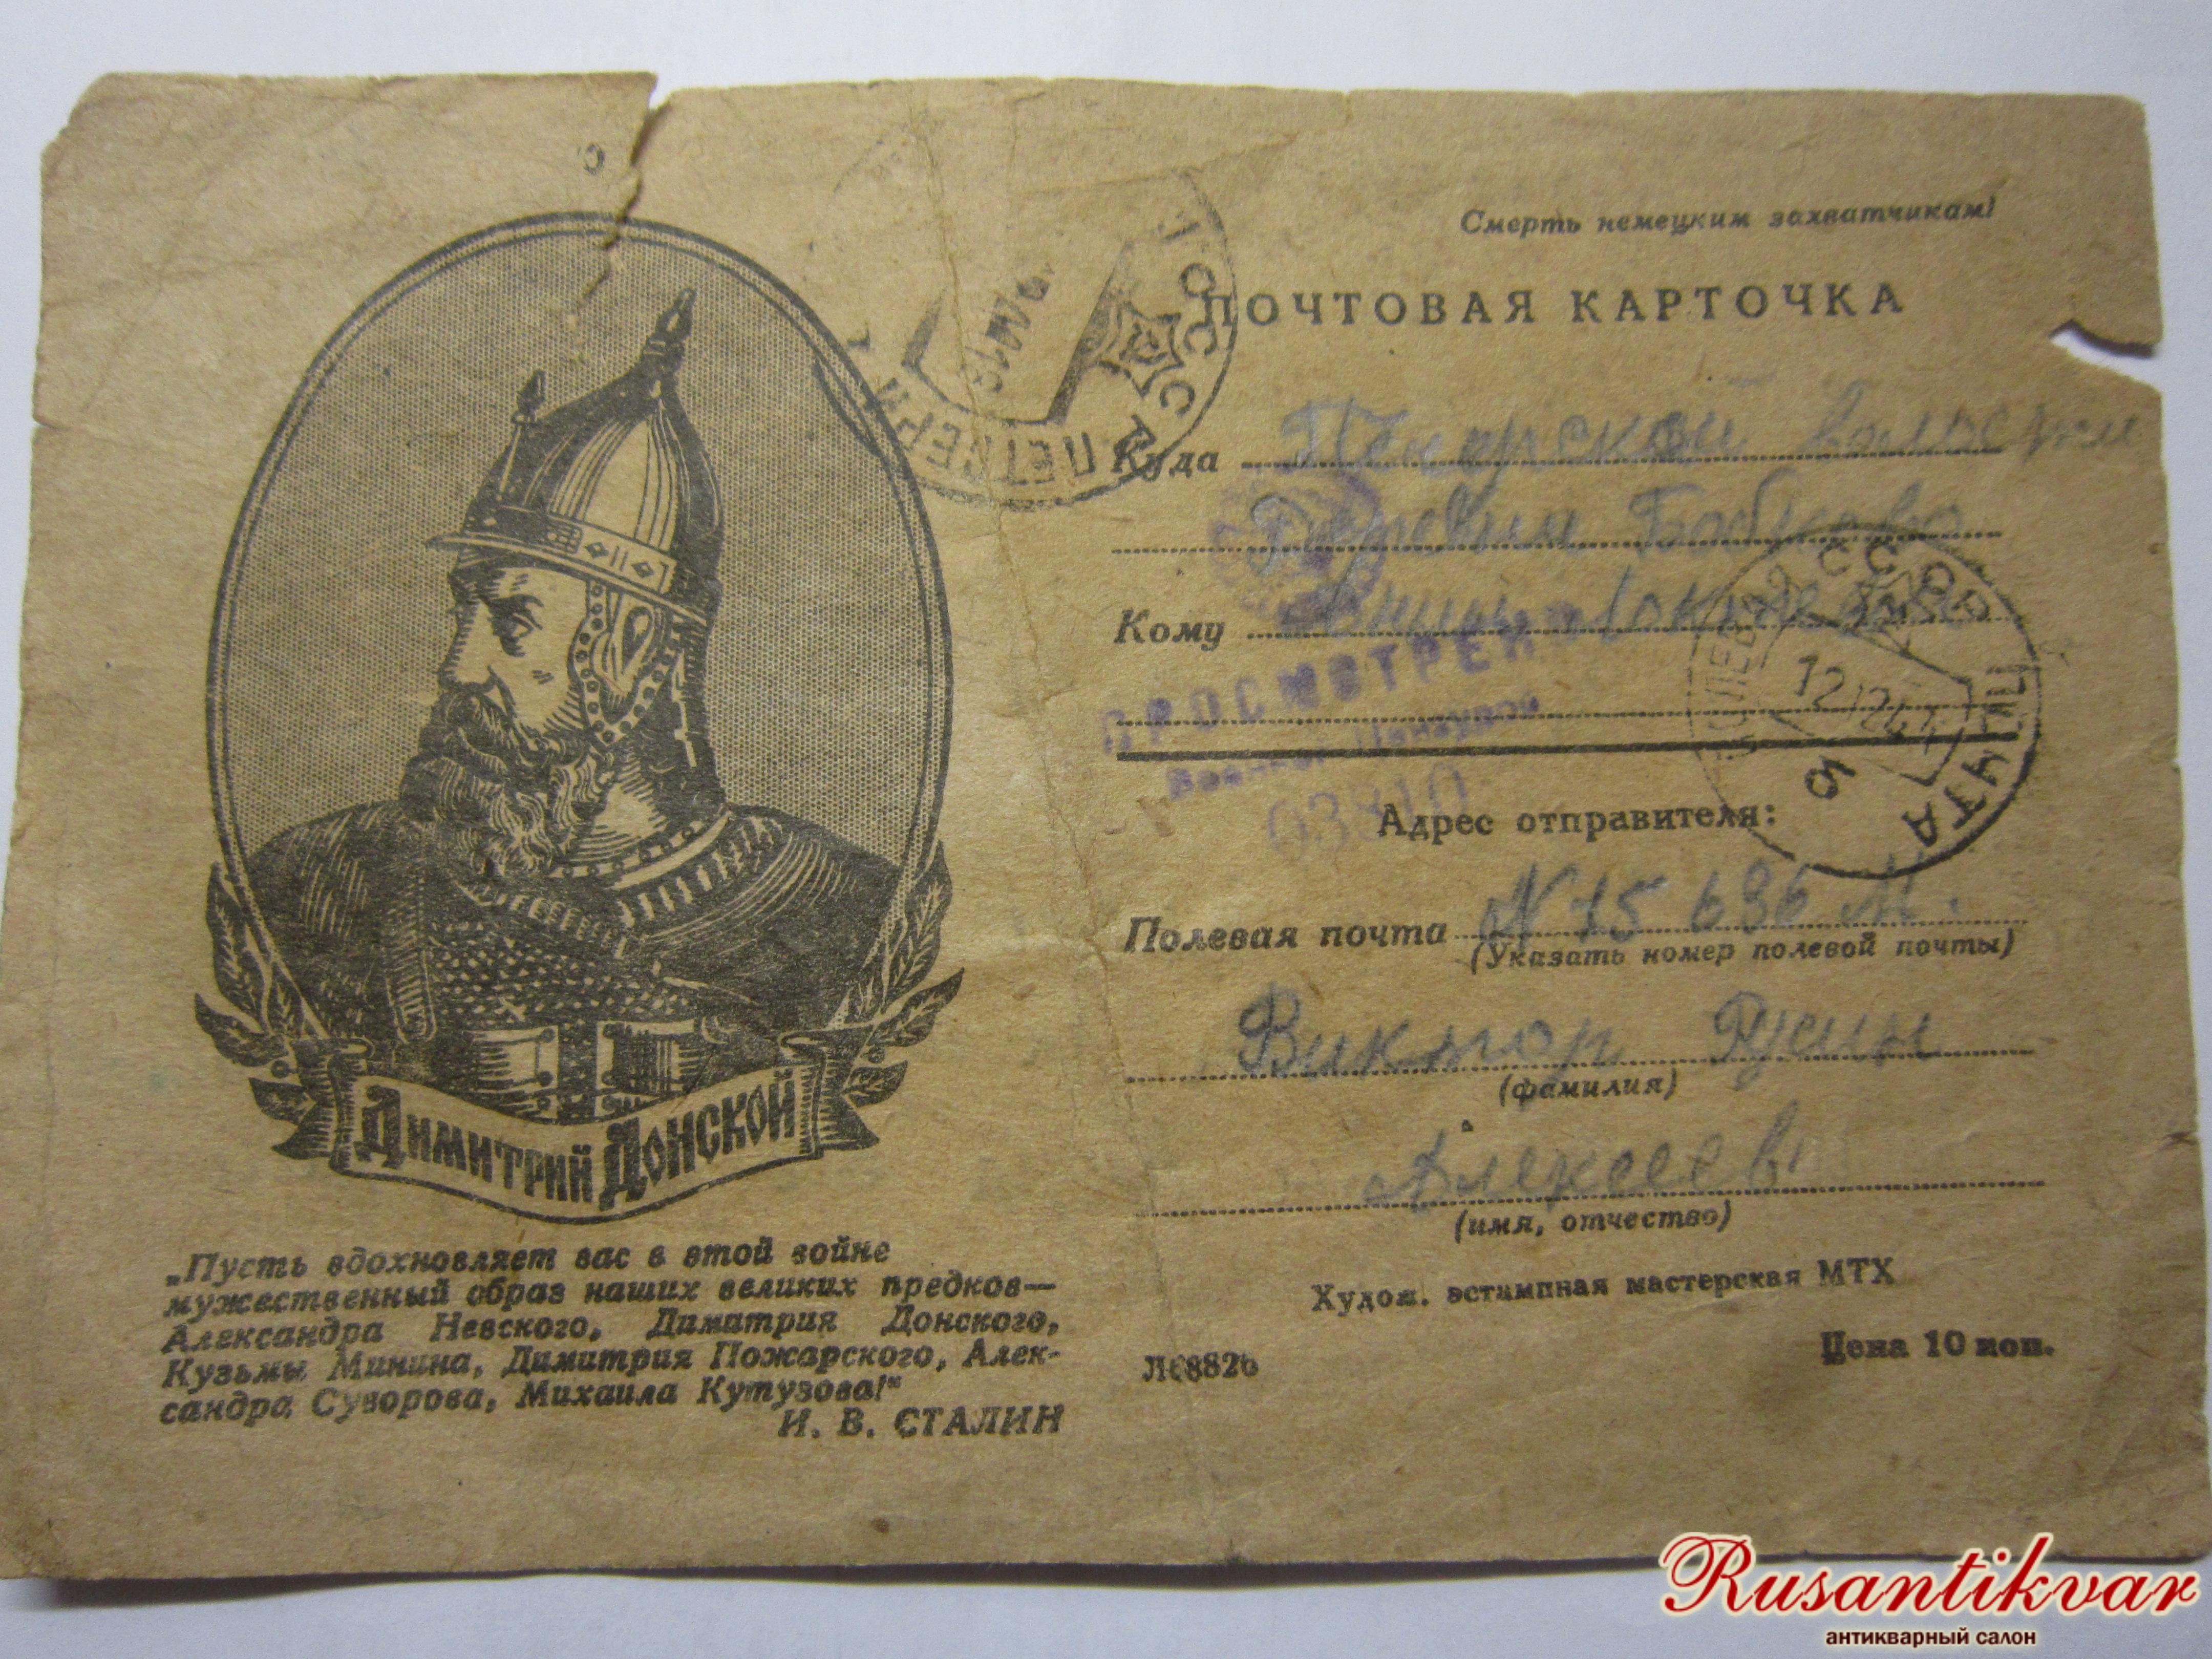 Смерть немецким захватчикам!
ПОЧТОВАЯ КАРТОЧКА
Куда
Деревни
Кому
ПРОСМОТРЕНО
Военной Цензурой
03810
СССР
ПОЛЕВАЯ ПОЧТА
12 12 44
Адрес отправителя:
Полевая почта N 15 636 М.
(Указать номер полевой почты)
Виктор Русин
(фамилия)
Алексеев
(имя, отчество)
Худож. эстампная мастерская МТХ
Цена 10 коп.
Димитрий Донской
„Пусть вдохновляет вас в этой войне
мужественный образ наших великих предков—
Александра Невского, Димитрия Донского,
Кузьмы Минина, Димитрия Пожарского, Алек-
сандра Суворова, Михаила Кутузова!"
И. В. СТАЛИН
Rusantikvar
антикварный салон